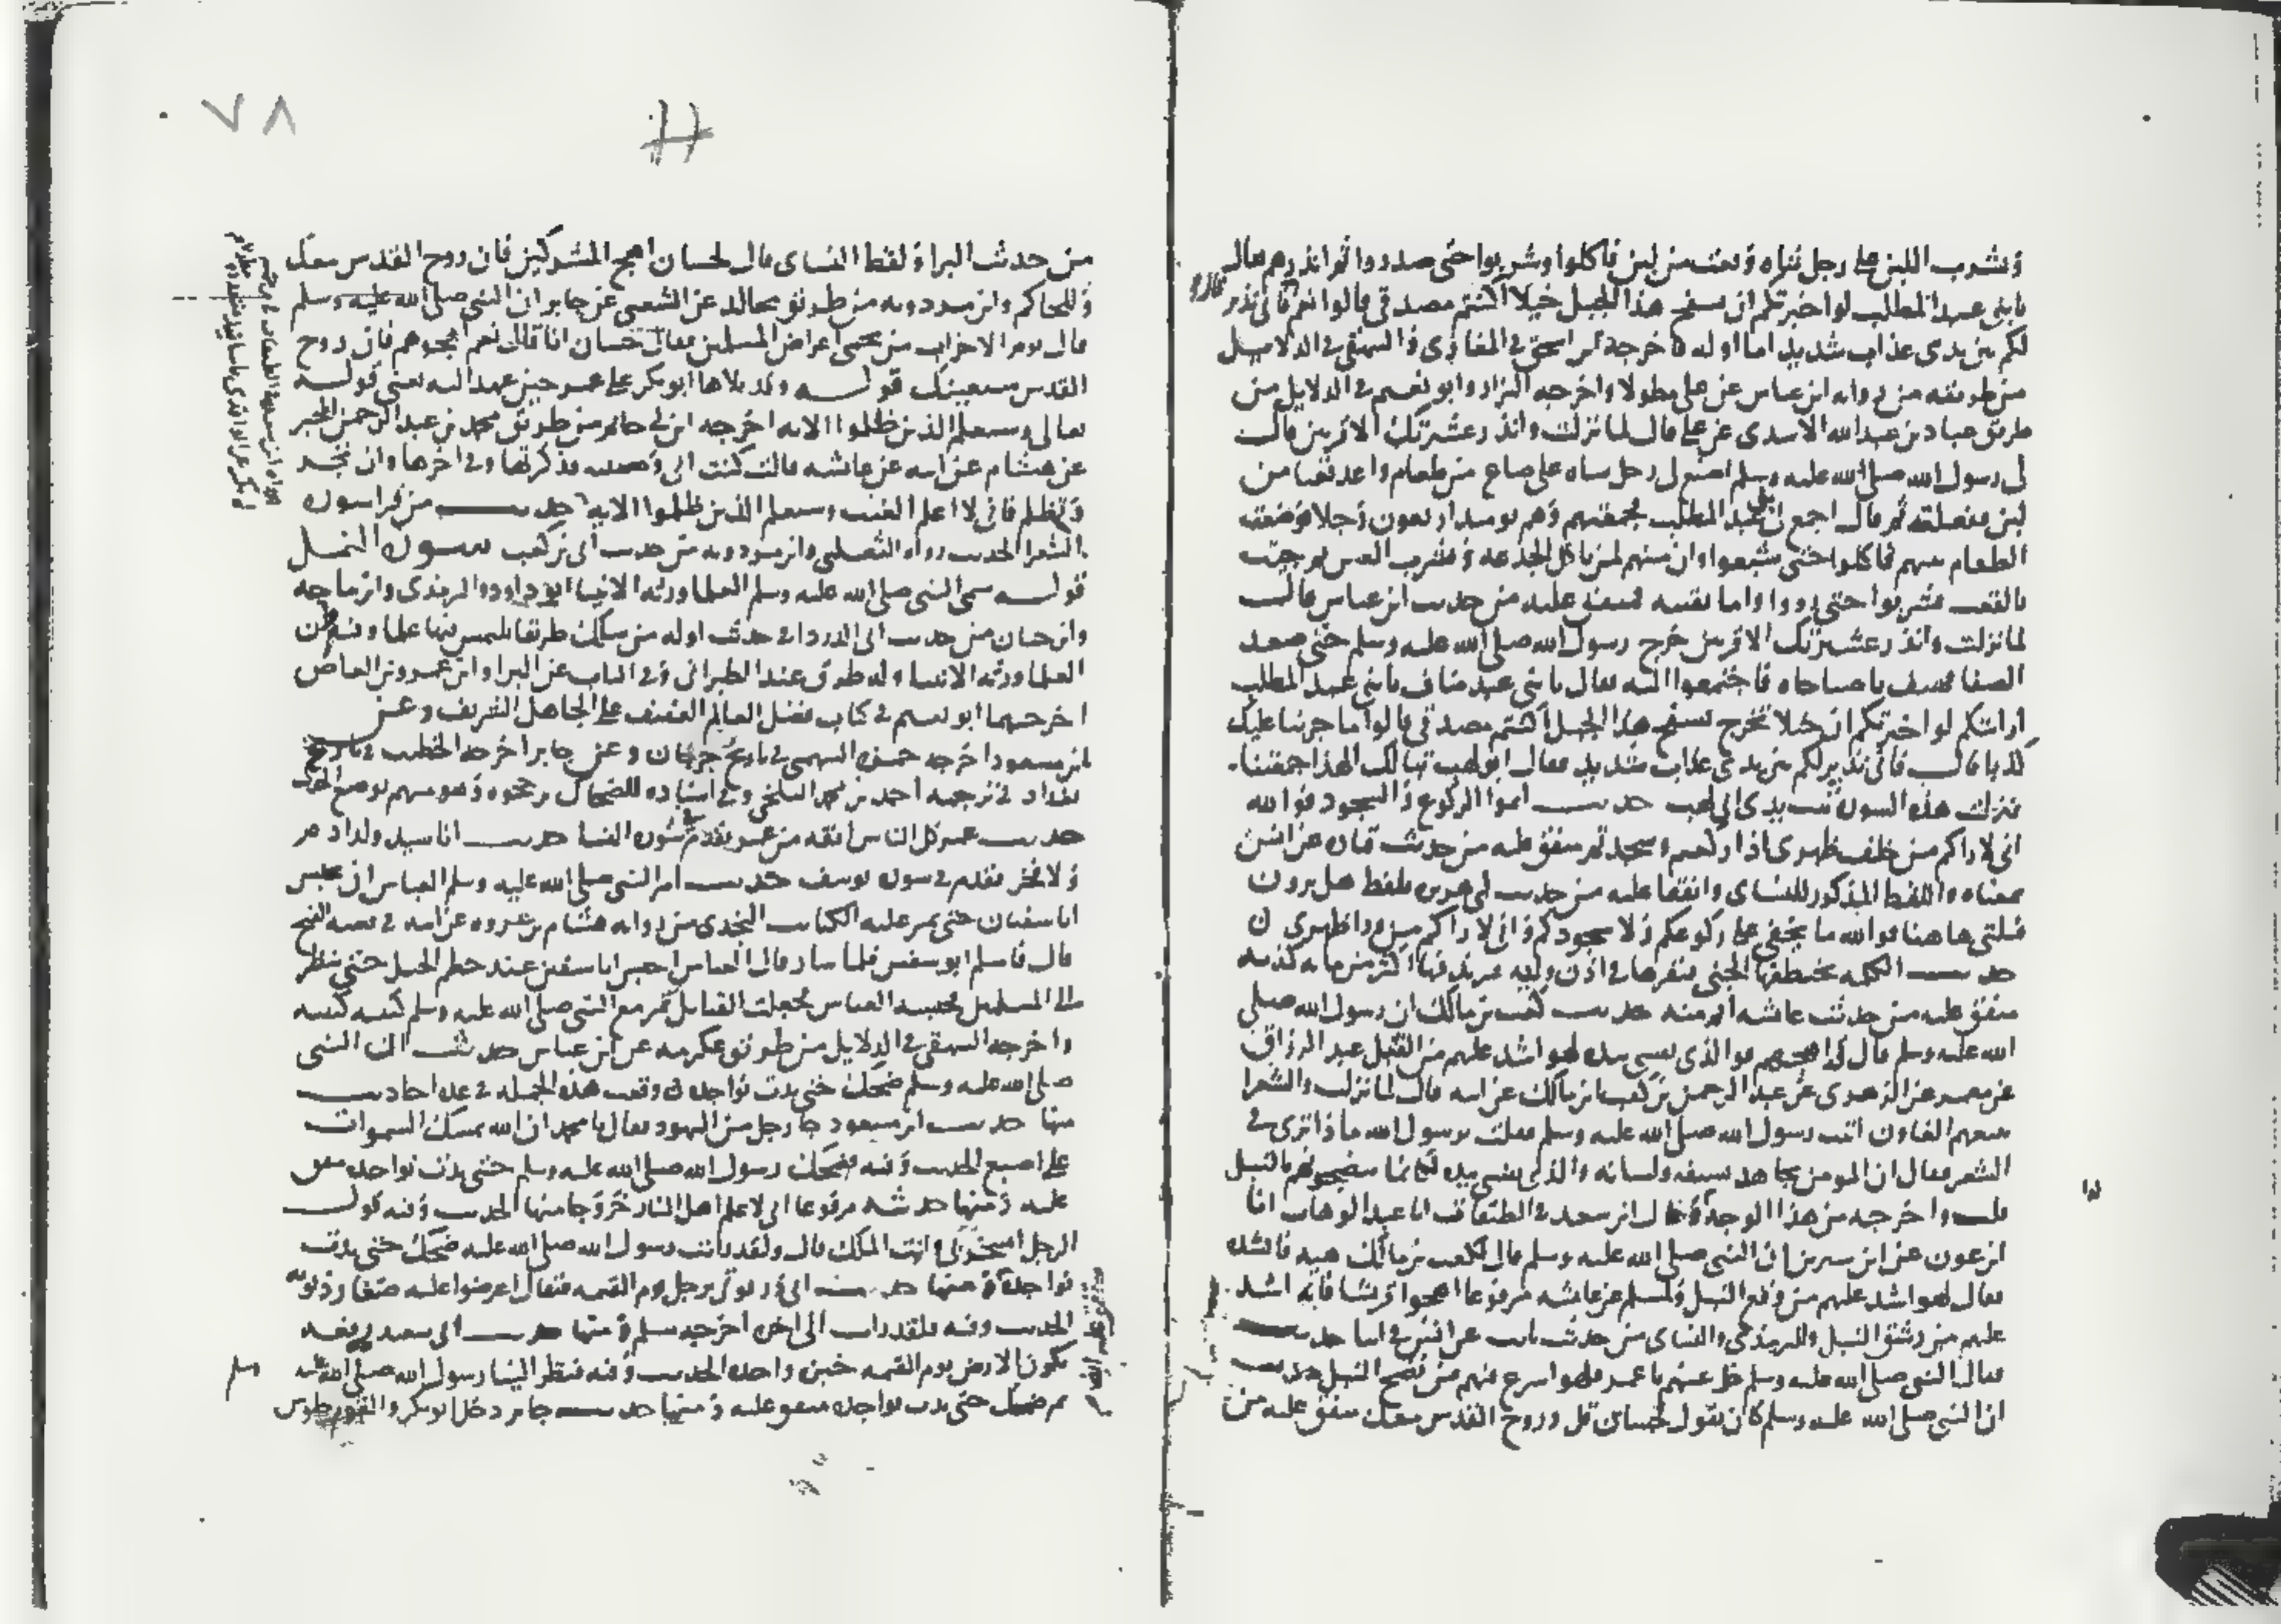 ويشرب اللبن على رجل شاه وقعب من لبن فاكلوا وشربوا حتى صدروا ثم انذرهم فقال
يا بني عبد المطلب لو اخبرتكم ان بسفح هذا الجبل خيلا اكنتم مصدقي قالوا نعم قال فاني نذير
لكم بين يدي عذاب شديد اما اوله فاخرجه ابن اسحق في المغازي والبيهقي في الدلايل
من طريقه من رواية ابن عباس عن علي مطولا واخرجه البزار وابو نعيم في الدلايل من
طريق عباد بن عبد الله الاسدي عن علي قال لما نزلت وانذر عشيرتك الاقربين قال
لي رسول الله صلى الله عليه وسلم اصنع لي رجل شاه على صاع من طعام واعد قعبا من
لبن ففعلته ثم قال اجمع لي بني عبد المطلب فجمعتهم وهم يوميذ اربعون رجلا فوضعت
الطعام بينهم فاكلوا حتى شبعوا وان منهم لمن ياكل الجذعه ويشرب العس ثم جيت
بالقعب فشربوا حتى رووا واما بقيته فمتفق عليه من حديث ابن عباس قال
لما نزلت وانذر عشيرتك الاقربين خرج رسول الله صلى الله عليه وسلم حتى صعد
الصفا فهتف يا صباحاه فاجتمعوا اليه فقال يا بني عبد مناف يا بني عبد المطلب
ارايتكم لو اخبرتكم ان خيلا تخرج بسفح هذا الجبل اكنتم مصدقي قالوا ما جربنا عليك
كذبا قال فاني نذير لكم بين يدي عذاب شديد فقال ابو لهب تبا لك الهذا جمعتنا
فنزلت هذه السوره تبت يدي ابي لهب حديث اتموا الركوع والسجود فوالله
اني لاراكم من خلف ظهري اذا ركعتم وسجدتم متفق عليه من حديث قتاده عن انس
بمعناه واللفظ المذكور للنساي واتفقا عليه من حديث ابي هريره بلفظ هل ترون
قبلتي ها هنا فوالله ما يخفى علي ركوعكم ولا سجودكم واني لاراكم من ورا ظهري
حديث الكلمه يخطفها الجني فيقرها في اذن وليه فيزيد فيها اكثر من مايه كذبه
متفق عليه من حديث عايشه اتم منه حديث كعب بن مالك ان رسول الله صلى
الله عليه وسلم قال له اهجهم فوالذي نفسي بيده لهو اشد عليهم من النبل عبد الرزاق
عن معمر عن الزهري عن عبد الرحمن بن كعب بن مالك عن ابيه قال لما نزلت والشعرا
يتبعهم الغاون اتيت رسول الله صلى الله عليه وسلم فقلت يرسول الله ما ذا ترى في
الشعر فقال ان المومن يجاهد بسيفه ولسانه والذي نفسي بيده لكانما ينضحونهم بالنبل
قلت واخرجه من هذا الوجه وقال ابن سعد في الطبقات انا عبد الوهاب انا
ابن عون عن ابن سيرين ان النبي صلى الله عليه وسلم قال لكعب بن مالك هيه فانشده
فقال لهو اشد عليهم من وقع النبل ولمسلم عن عايشه مرفوعا اهجوا قريشا فانه اشد
عليهم من رشق النبل وللترمذي والنساي من حديث ثابت عن انس في اثنا حديث
فقال النبي صلى الله عليه وسلم خل عنهم يا عمر فلهو اسرع فيهم من نضح النبل حديث
ان النبي صلى الله عليه وسلم كان يقول لحسان قل وروح القدس معك متفق عليه من
٧٨
من حديث البراء ولفظ النساي قال لحسان اهج المشركين فان روح القدس معك
وللحاكم وابن مردويه من طريق مجالد عن الشعبي عن جابر ان النبي صلى الله عليه وسلم
قال يوم الاحزاب من يحمي اعراض المسلمين فقال حسان انا قال نعم اهجوهم فان روح
القدس سيعينك قوله وقد تلاها ابو بكر على عمر حين عهد اليه يعني قوله
تعالى وسيعلم الذين ظلموا الايه اخرجه ابن ابي حاتم من طريق محمد بن عبد الرحمن المجبر
عن هشام عن ابيه عن عايشه قالت كتب ابي وصيته فذكرتها وفي اخرها وان يجر
ويظلم فاني لا اعلم الغيب وسيعلم الذين ظلموا الايه حديث من قرا سورة
الشعرا الحديث رواه الثعلبي وابن مردويه من حديث ابي بن كعب سورة النمل
قوله سمى النبي صلى الله عليه وسلم العلما ورثه الانبيا ابو داود والترمذي وابن ماجه
وابن حبان من حديث ابي الدرداء في حديث اوله من سلك طريقا يلتمس فيها علما وفيه وان
العلما ورثه الانبيا وله طرق عند الطبراني وفي الباب عن البرا وابن عمرو بن العاص
اخرجهما ابو نعيم في كتاب فضل العالم العفيف على الجاهل الشريف وعن
ابن مسعود اخرجه حمزه السهمي في تاريخ جرجان وعن جابر اخرجه الخطيب في تاريخ
بغداد في ترجمه احمد بن محمد البلخي وفي اسناده للضحاك بن حجوه وهو متهم بوضع الحديث
حديث عمر كل الناس افقه من عمر تقدم في سورة النسا حديث انا سيد ولد ادم
ولا فخر تقدم في سوره يوسف حديث امر النبي صلى الله عليه وسلم العباس ان يحبس
ابا سفيان حتى تمر عليه الكتايب البخاري من رواية هشام بن عروه عن ابيه في قصه الفتح
قال فاسلم ابو سفين فلما سار قال للعباس احبس ابا سفين عند حطم الجبل حتى ينظر
الى المسلمين فحبسه العباس فجعلت القبايل تمر مع النبي صلى الله عليه وسلم كتيبه كتيبه
واخرجه البيهقي في الدلايل من طريق عكرمه عن ابن عباس حديث ان النبي
صلى الله عليه وسلم ضحك حتى بدت نواجذه وقعت هذه الجمله في عده احاديث
منها حديث ابن مسعود جا رجل من اليهود فقال يا محمد ان الله يمسك السموات
على اصبع الحديث وفيه فضحك رسول الله صلى الله عليه وسلم حتى بدت نواجذه متفق
عليه ومنها حديثه مرفوعا اني لاعلم اهل النار خروجا منها الحديث وفيه قول
الرجل اتسخر بي وانت الملك قال ولقد رايت رسول الله صلى الله عليه ضحك حتى بدت
نواجذه ومنها حديث ابي ذر يوتى برجل يوم القيمه فيقال اعرضوا عليه صغار ذنوبه
الحديث وفيه فلقد رايت الى اخره اخرجه مسلم ومنها حديث ابي سعيد رفعه
تكون الارض يوم القيمه خبزه واحده الحديث وفيه فنظر الينا رسول الله صلى الله عليه
ثم ضحك حتى بدت نواجذه متفق عليه ومنها حديث جابر دخل ابو بكر والقوم جلوس